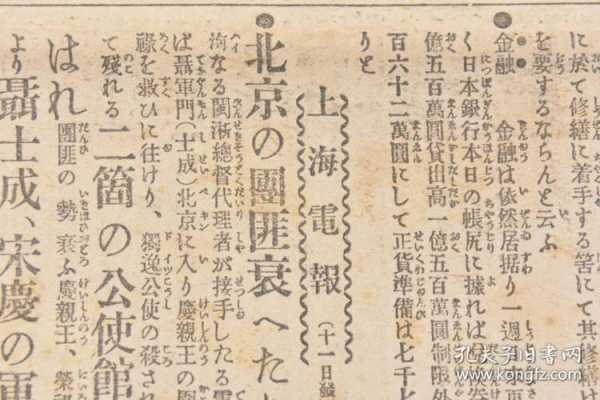 に於て修繕に着手する筈にて其修繕は
を要するならんと云ふ
●金融 金融は依然居据り一週
く日本銀行本日の帳尻に據れば
億五百萬圓貸出高一億五百萬圓制限外
百六十二萬圓にして正貨準備は七千七
りと
上海電報（十一日發
●北京の團匪衰へた
洵なる閩淅總督代理者が接手したる電
ば聶軍門（士成）北京に入り慶親王の
祿を救ひに往けり、獨逸公使の殺され
て殘れる二箇の公使館
はれ團匪の勢衰ふ慶親王、榮
より聶士成、宋慶の軍
孔夫子旧书网
kongfz.com